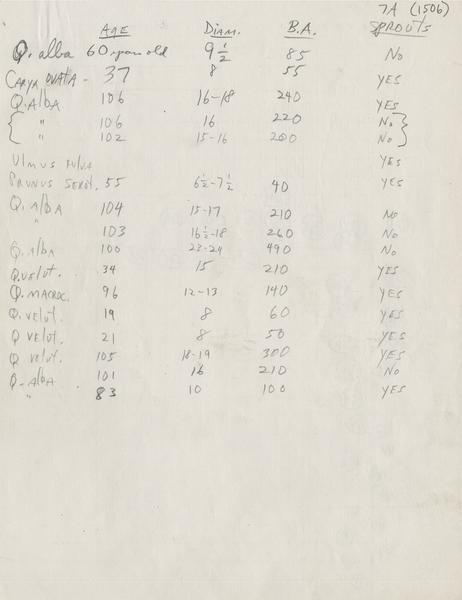 7A (1506)
AGE DIAM. B.A. SPROUTS
Q. alba 60-years old 9 1/2 85 No
CARYA OVATA - 37 8 55 YES
Q. Alba 106 16-18 240 YES
{ " 106 16 220 No }
{ " 102 15-16 200 No }
ULMUS FULVA YES
PRUNUS SEROT. 55 6 1/2-7 1/2 40 YES
Q. Alba 104 15-17 210 No
" 103 16 1/2-18 260 No
Q. Alba 100 23-24 490 No
Q. Velut. 34 15 210 YES
Q. MACROC. 96 12-13 140 YES
Q. Velut. 19 8 60 YES
Q Velut. 21 8 50 YES
Q Velut. 105 18-19 300 YES
Q. Alba 101 16 210 No
" 83 10 100 YES